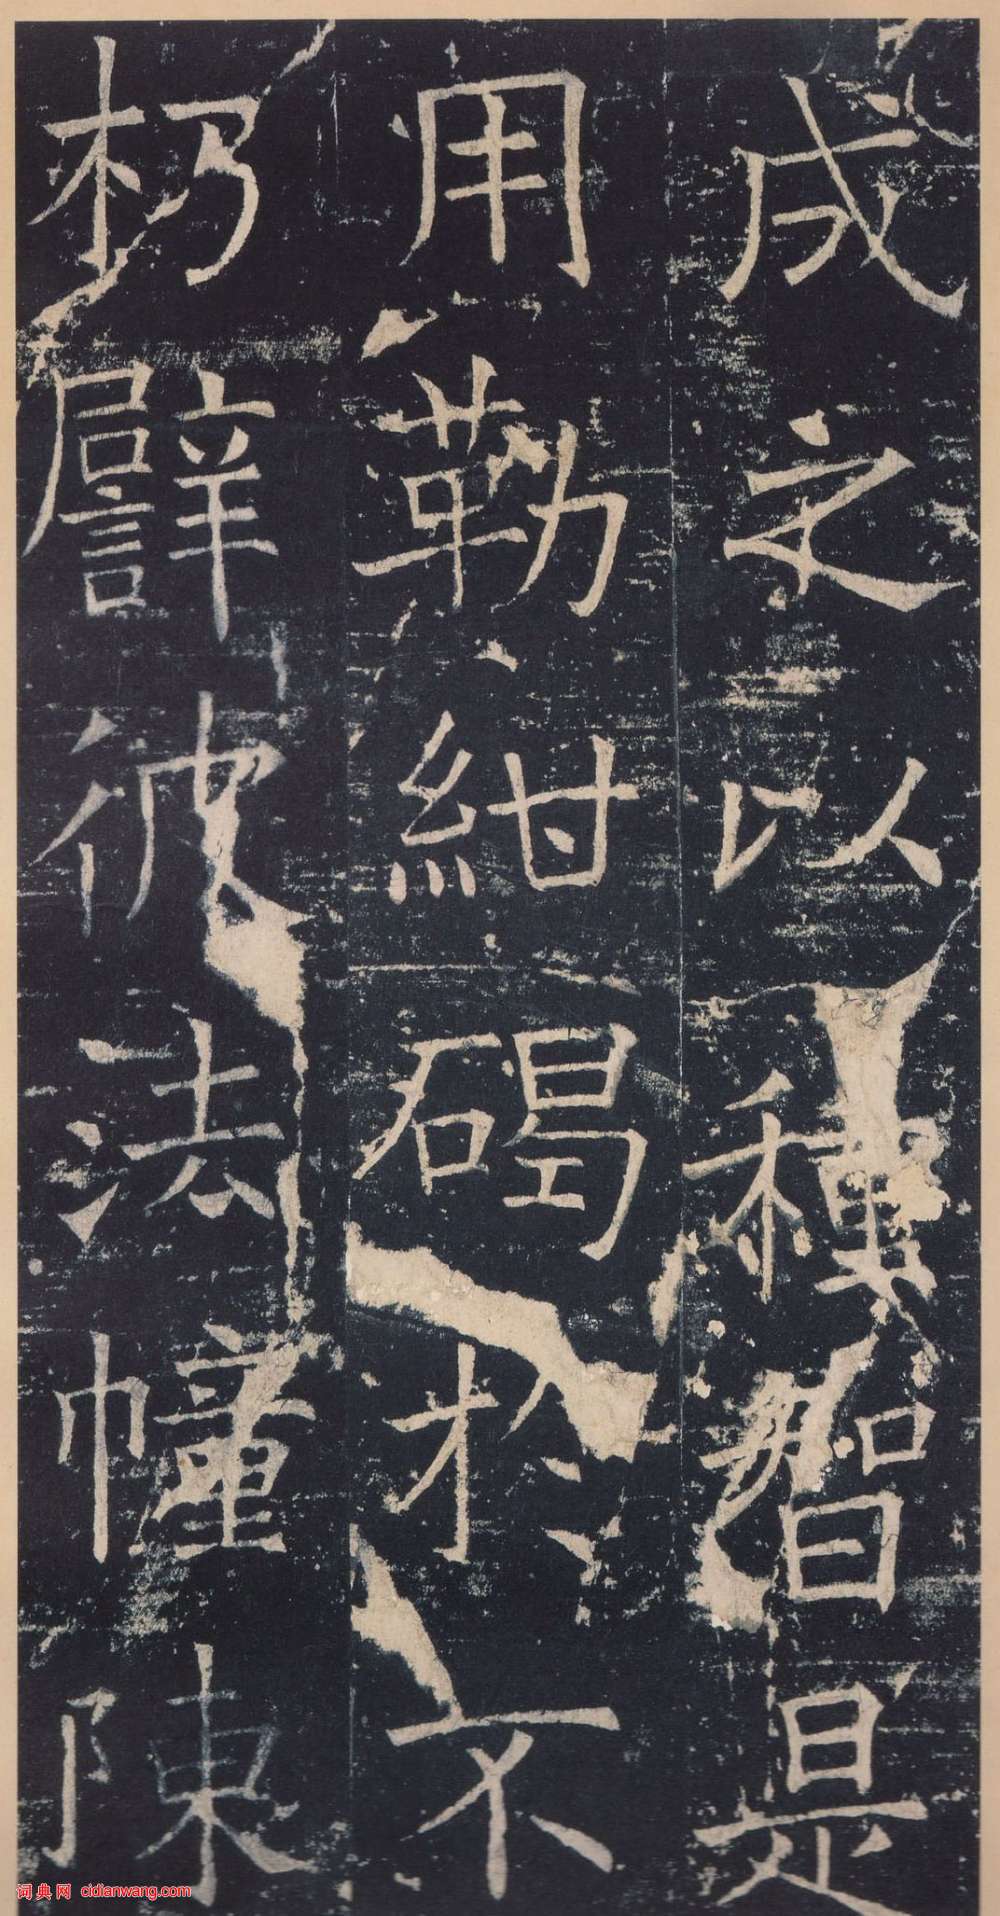 成之以種智是
用勒紺碣於不
朽譬彼法幢陳
词典网 cidianwang.com